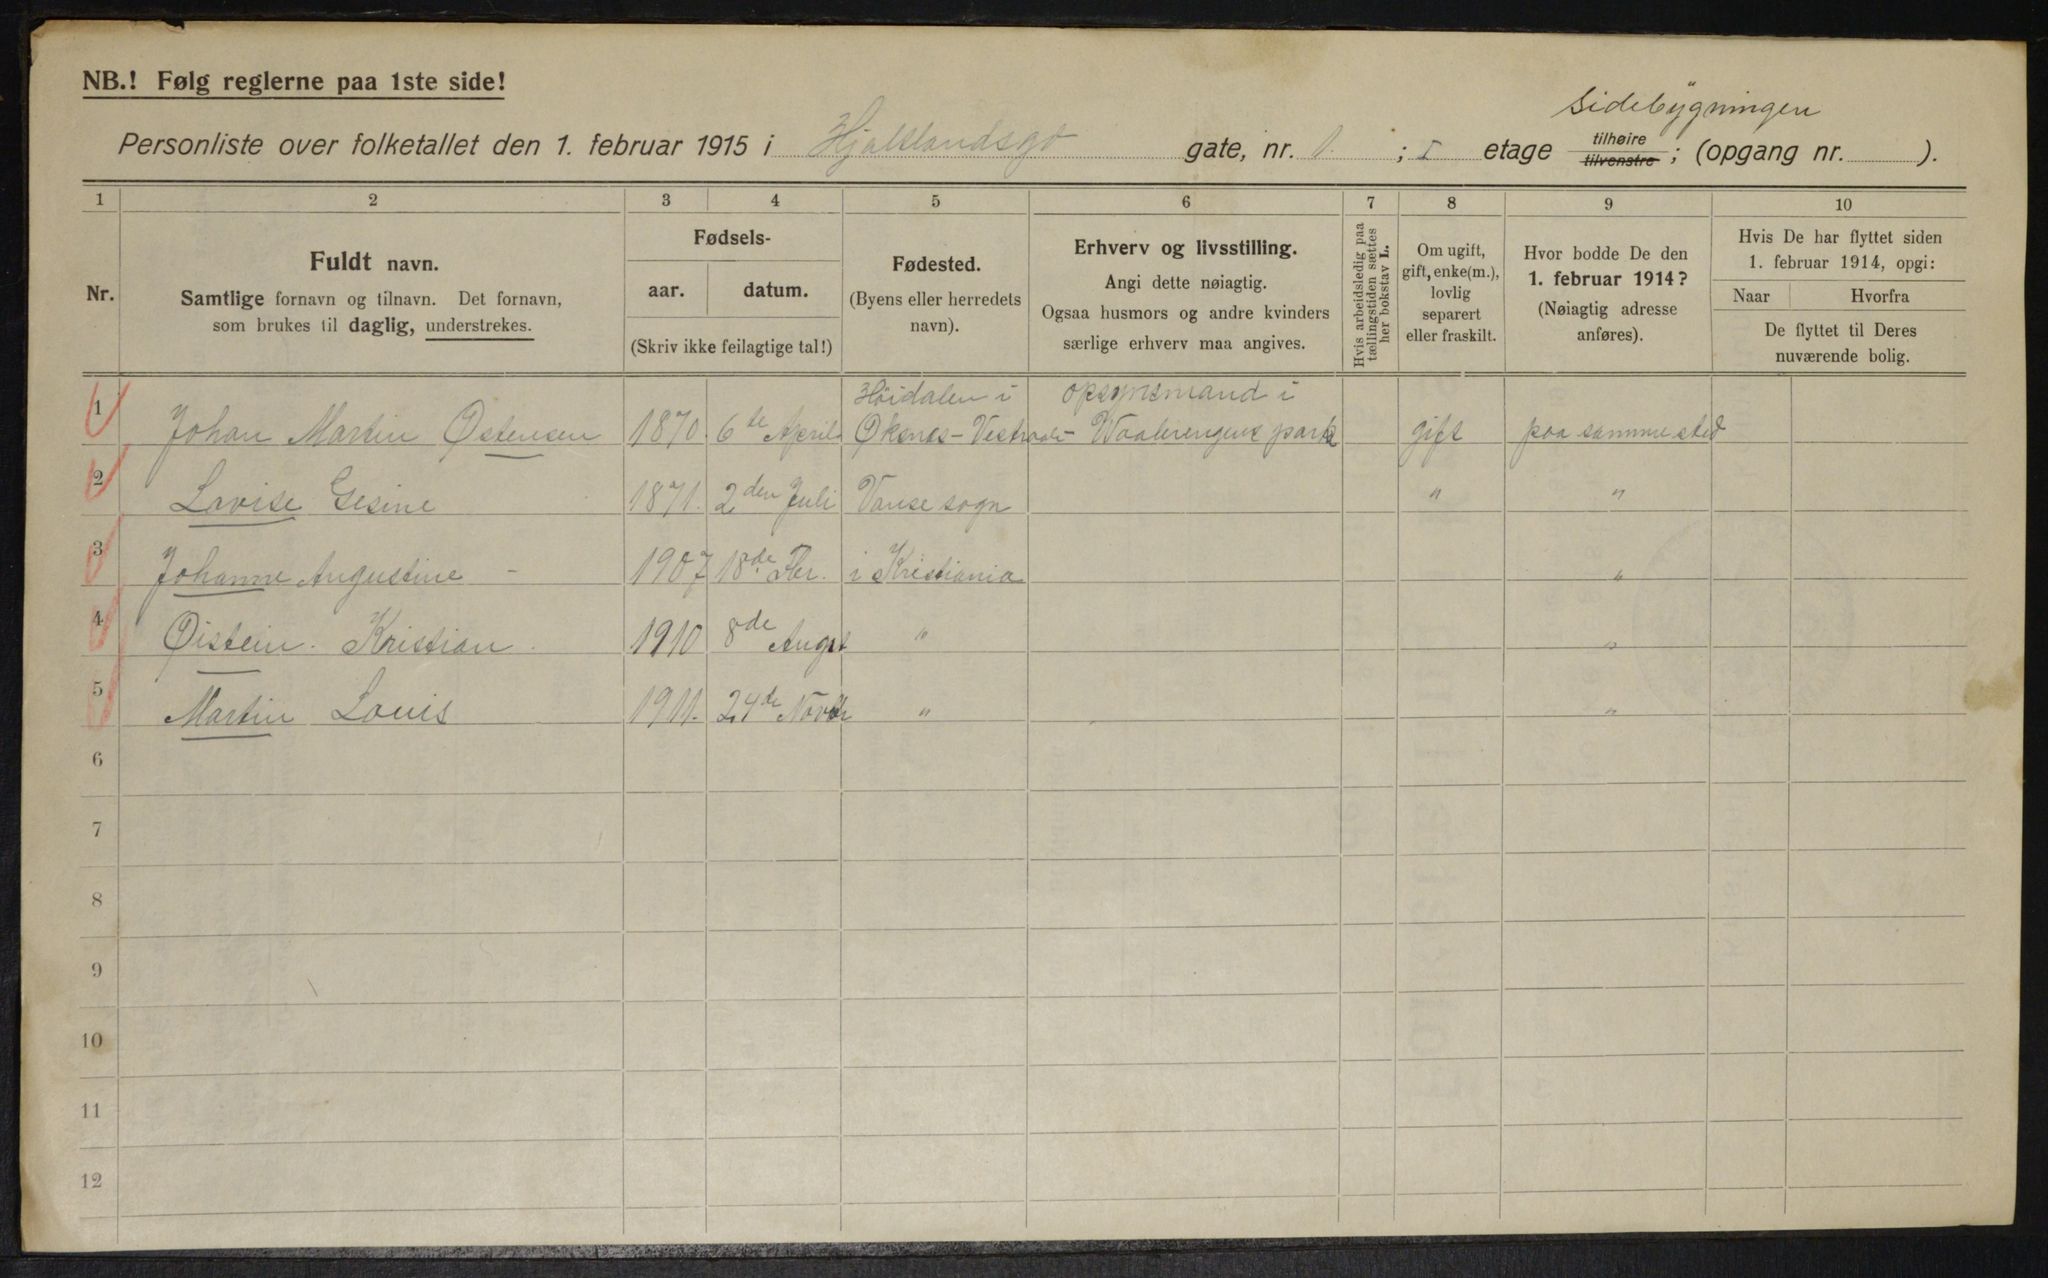 NB.! Følg reglerne paa 1ste side!
Sidebygningen
Personliste over folketallet den 1. februar 1915 i Hjaltlandsgt gate, nr. 1. ; I etage tilhøire tilvenstre ; (opgang nr. ).
1 2 3 4 5 6 7 8 9 10
Nr.
Fuldt navn.
Samtlige fornavn og tilnavn. Det fornavn,
som brukes til daglig, understrekes.
Fødsels-
aar. datum.
(Skriv ikke feilagtige tal!)
Fødested.
(Byens eller herredets
navn).
Erhverv og livsstilling.
Angi dette nøiagtig.
Ogsaa husmors og andre kvinders
særlige erhverv maa angives.
Hvis arbeidsledig paa
tællingstiden sættes
her bokstav L.
Om ugift,
gift, enke(m.),
lovlig
separert
eller fraskilt.
Hvor bodde De den
1. februar 1914?
(Nøiagtig adresse
anføres).
Hvis De har flyttet siden
1. februar 1914, opgi:
Naar Hvorfra
De flyttet til Deres
nuværende bolig.
Høidalen i opsynsmand i
1 Johan Martin Østensen 1870. 6te April Øksnes - Vaalerengens park gift paa samme sted
2 Lovise Gesine 1871. 2den Juli Vanse sogn " "
3 Johanne Augustine - 1907 18de i Kristiania "
4 Øistein. Kristian. 1910 8de Augst " "
5 Martin Louis 1911. 24de Novbr " "
6
7
8
9
10
11
12